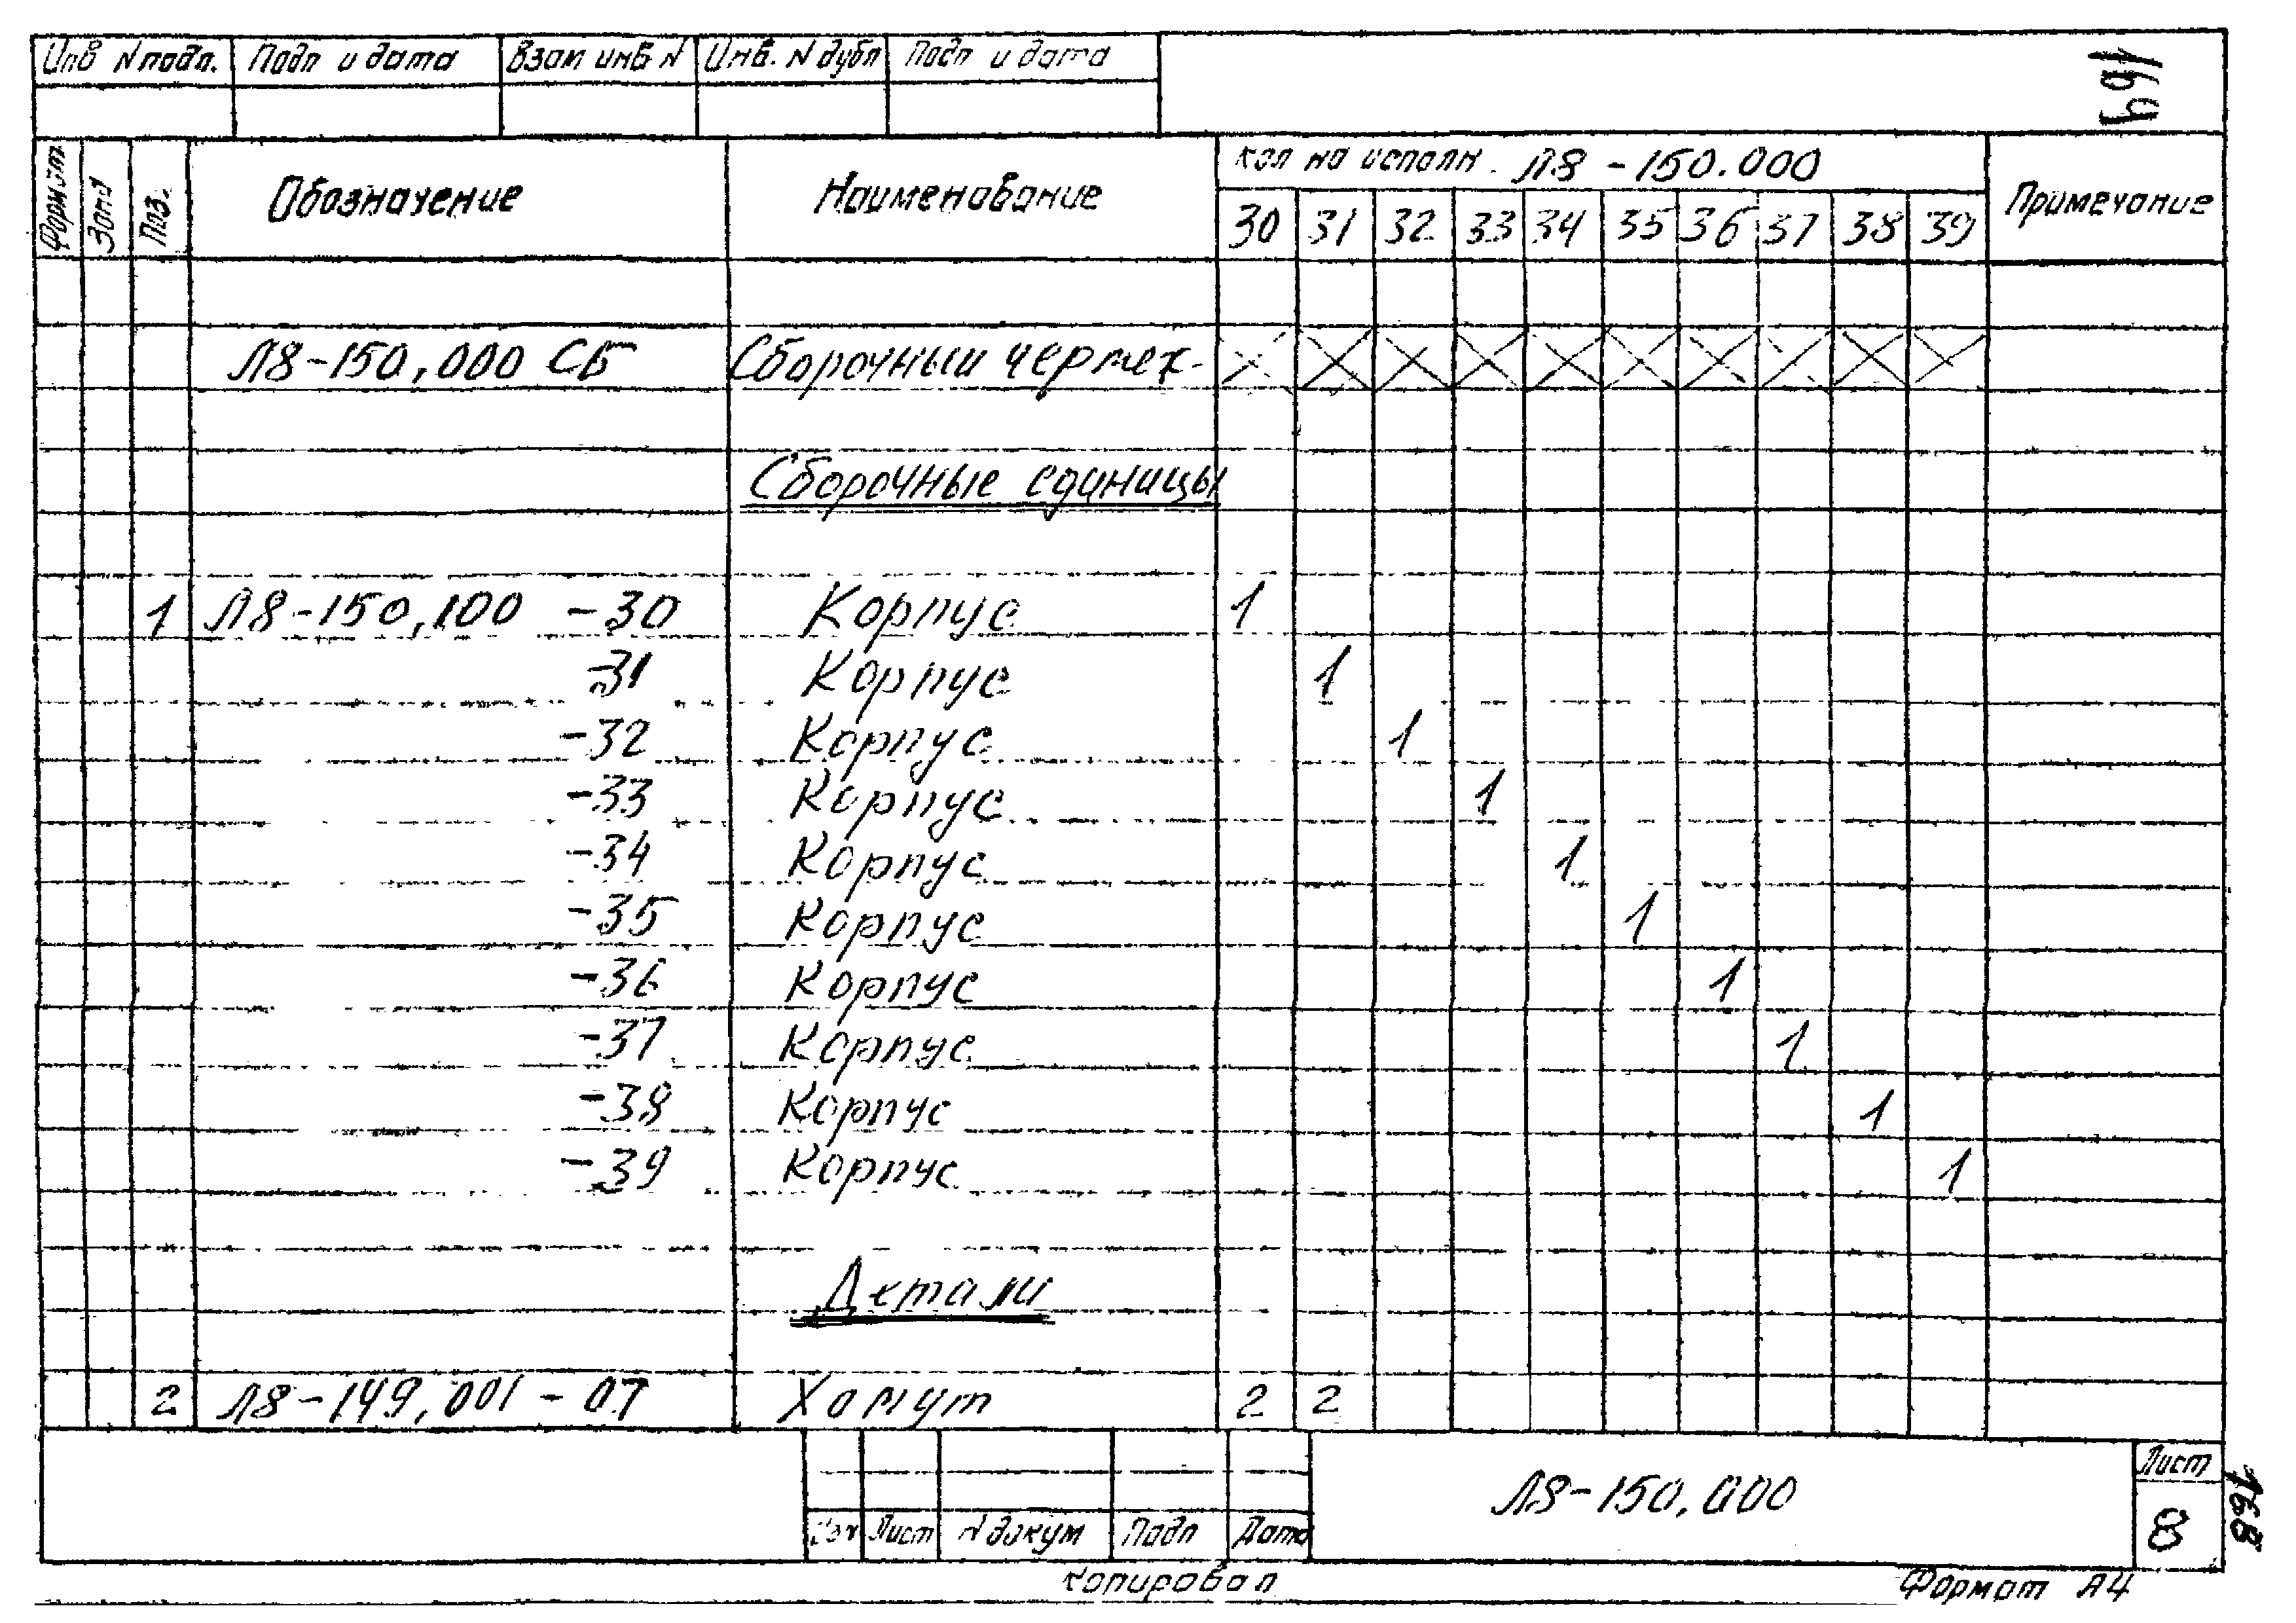 Инв N подл. Подп и дата Взам инв N Инв. N дубл Подп и дата
169
Формат Зона Поз. Обозначение Наименование кол на исполн. Л8-150.000 Примечание
30 31 32 33 34 35 36 37 38 39
Л8-150,000 СБ Сборочный чертеж
Сборочные единицы
1 Л8-150,100 -30 Корпус 1
-31 Корпус 1
-32 Корпус 1
-33 Корпус 1
-34 Корпус 1
-35 Корпус 1
-36 Корпус 1
-37 Корпус 1
-38 Корпус 1
-39 Корпус 1
Детали
2 Л8-149,001-07 Хомут 2 2
Изм Лист N докум Подп Дата
Л8-150,000
Лист
8
168
Копировал
Формат А4